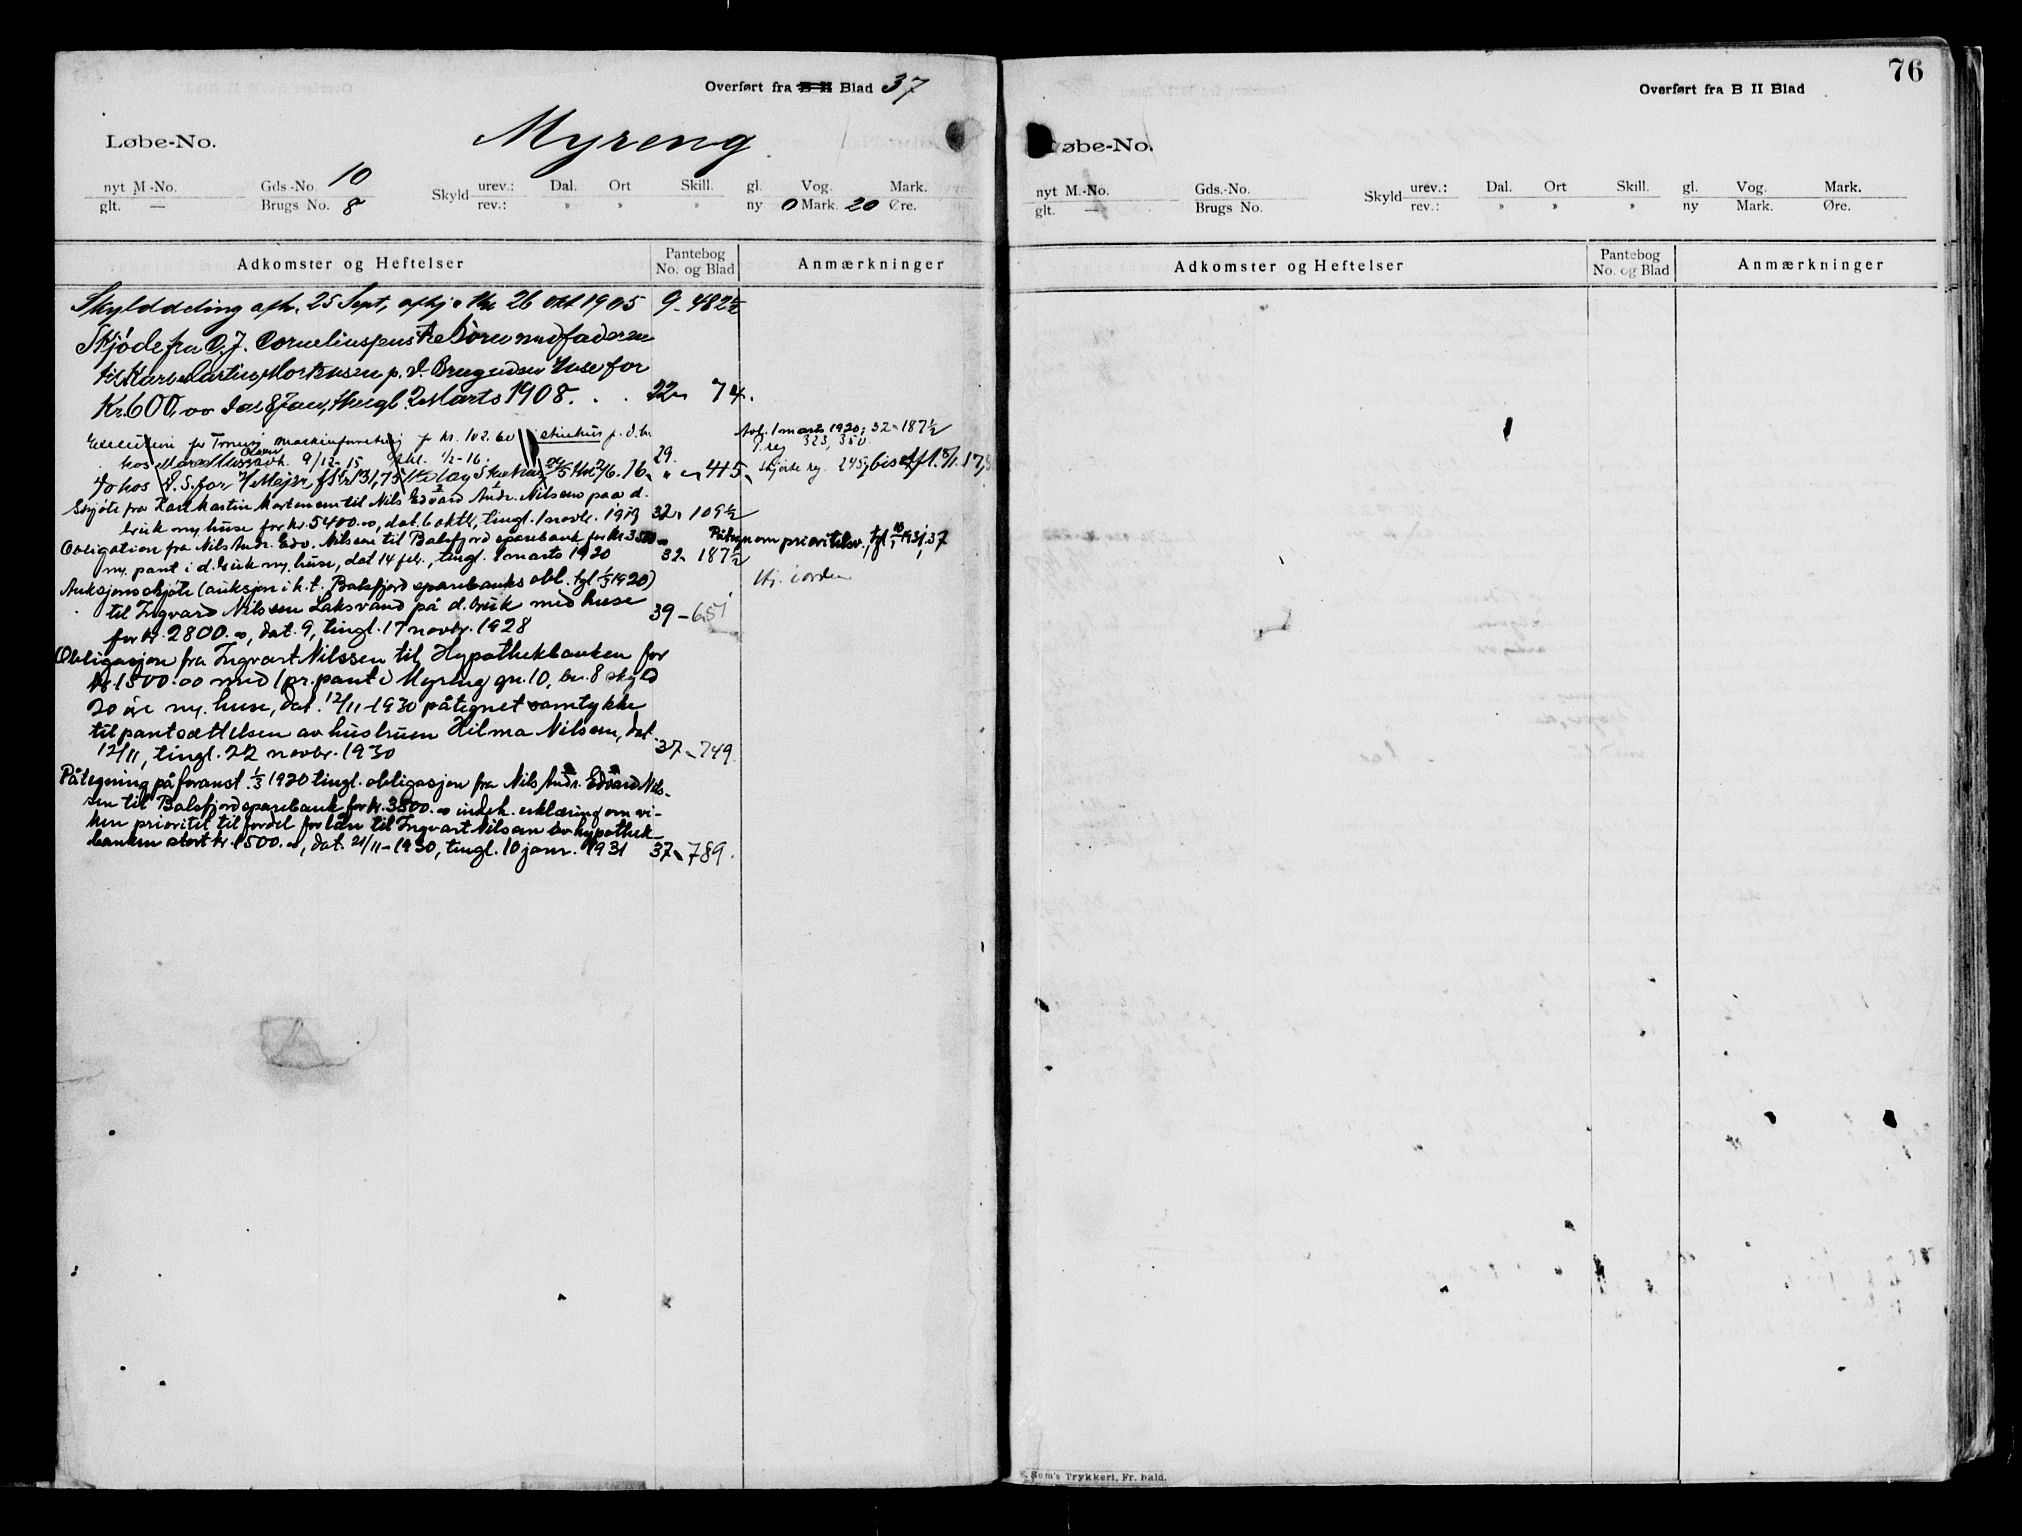 Overført fra B II Blad 37
Løbe-No.
Myreng.
nyt M.-No. Gds.-No. 10 Skyld urev.: Dal. Ort Skill. gl. Vog. Mark.
glt. — Brugs No. 8 rev.: " " " ny 0 Mark. 20 Øre.
Adkomster og Heftelser Pantebog No. og Blad Anmærkninger
Skylddeling afh. 25 Sept, afhj. 26 okt 1905 9- 482
Skjøde fra O. J. med faderen
til Karl Martin Mortensen p. d. Brug uden huse for
Kr. 600,00 dat 8 Jan, thingl. 2 Marts 1908. 22 74.
kr. 102.60 p. d. br.
hos 9/12-15 1/2-16. 29.
Do hos 131,75 16 " 415
Skjøte fra Karl Martin Mortensen til Nils Edvard Andr. Nilsen paa d.
bruk m. huse for kr. 5400.00, dat. 6 oktbr, tingl. 1 novbr. 1919 32 109½
Obligation fra Nils Andr. Edv. Nilsen til Balsfjord sparebank for kr. 3800.00
m. pant i d. bruk m. huse, dat 14 feb., tingl. 1 marts 1920 32 187½
Auksjonsskjøte (auksjon i h. t. Balsfjord sparebanks obl. tgl 1/3 1920)
til Ingvard Nilssen Laksvand på d. bruk med huse
for kr. 2800.00, dat. 9, tingl. 17 novbr. 1928 39-651
Obligasjon fra Ingvart Nilssen til Hypothekbanken for
kr. 1500.00 med 1 pr. pant i Myreng gn. 10, bn. 8 skyld
20 øre m. huse, dat. 12/11-1930 påtegnet samtykke
til pantsættelsen av hustruen Hilma Nilsen, dat.
12/11, tingl. 22 novbr. 1930 37-749
Påtegning på foranst. 1/3 1920 tingl. obligasjon fra Nils Andr. Edvard Nils-
sen til Balsfjord sparebank for kr. 3800.00 indeh. erklæring om vi-
ken prioritet til fordel for lån til Ingvart Nilsen av hypothek-
banken stort kr. 1500.00, dat. 21/11-1930, tingl. 10 janr. 1931 37-789.
Avl. 1 mars 1920; 32-187½
323, 350
skjøte 245
Påtegn om prioritetsv. tgl 10/1 1931, 37
i orden
76
Overført fra B II Blad
Løbe-No.
nyt M.-No. Gds.-No. Skyld urev.: Dal. Ort Skill. gl. Vog. Mark.
glt. — Brugs No. rev.: " " " ny Mark. Øre.
Adkomster og Heftelser Pantebog No. og Blad Anmærkninger
Sum's Trykkeri, Fr. hald.